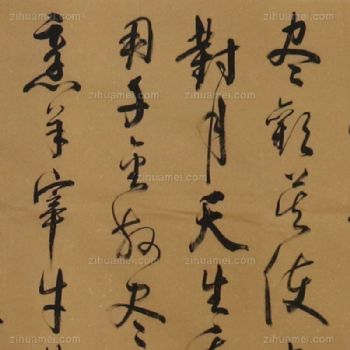 尽歡莫使
對月天生
用千金散尽
烹羊宰牛
zihuamei.com